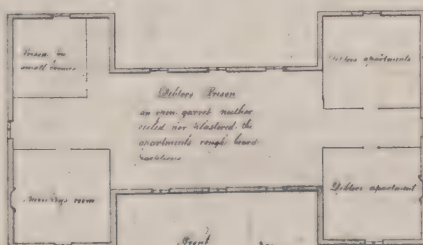 Prison for
small crimes
Debtors apartments
Debtors Prison
an open garret neither
ceiled nor plastered the
apartments rough board
partitions
room
Debtors apartment
Front